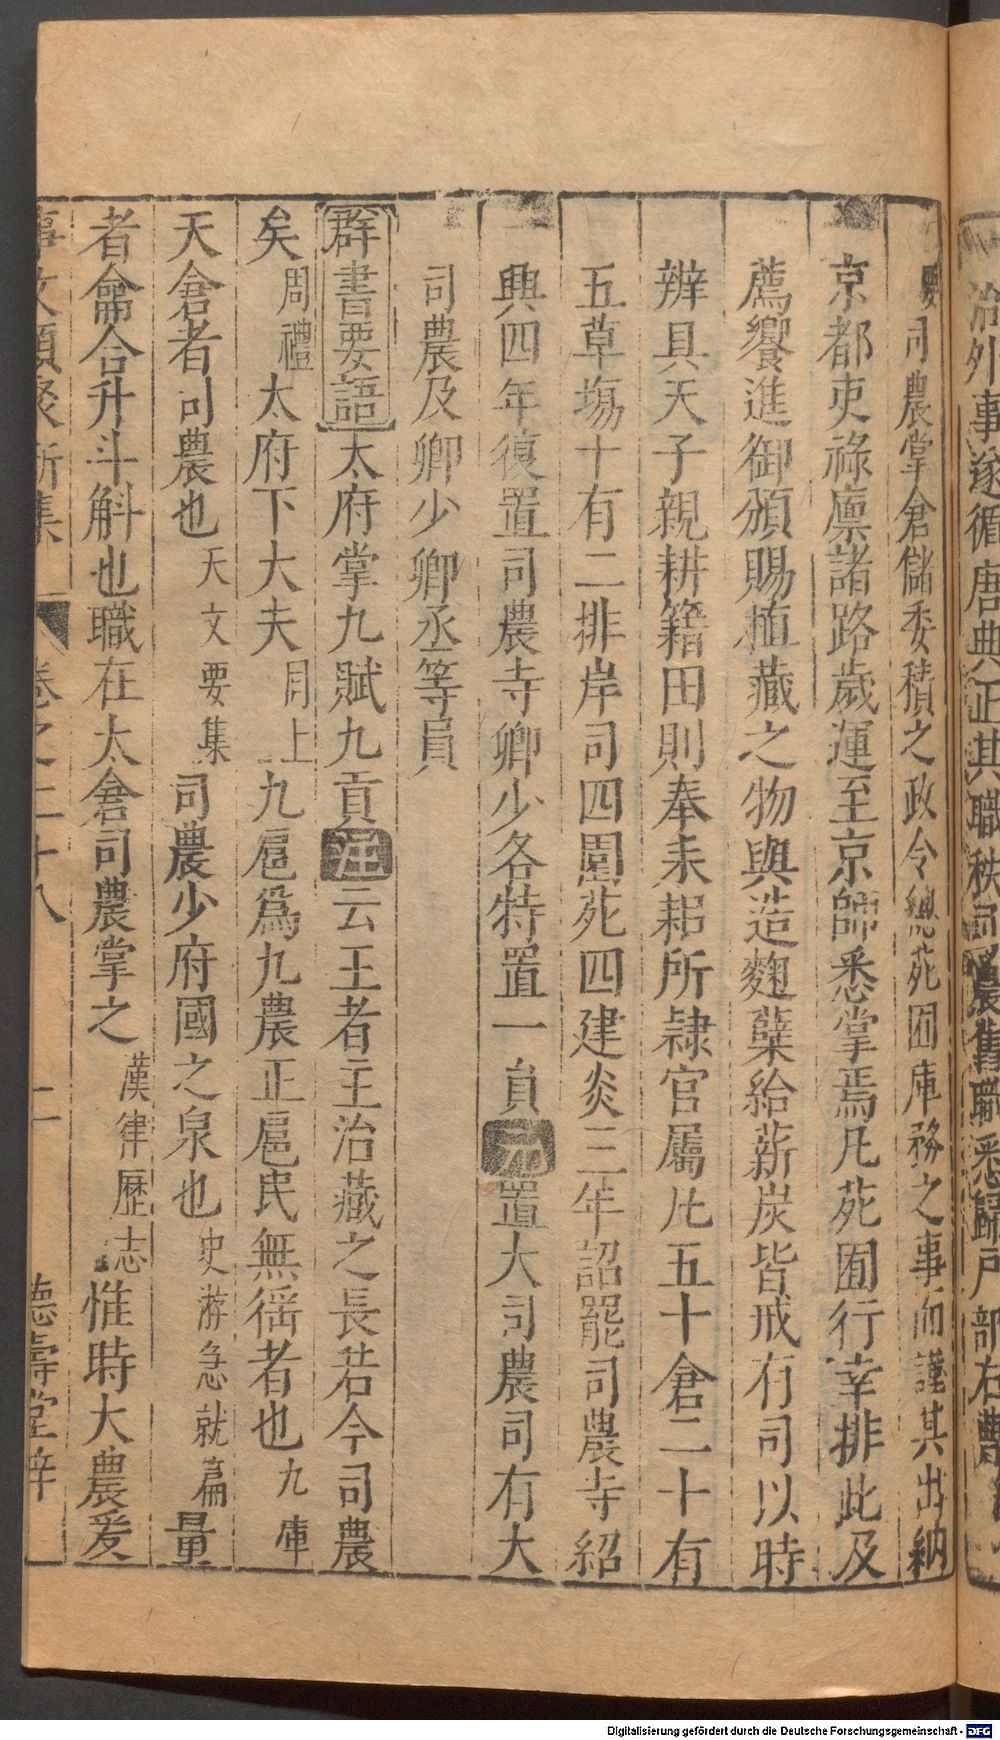 治外事遂循唐典正其職秩司農舊職悉歸戶部右農
司農掌倉儲委積之政令總苑囿庫務之事而謹其出納
京都吏祿廩諸路歲運至京師悉掌焉凡苑囿行幸排比及
薦饗進御頒賜植藏之物與造麴糵給薪炭皆戒有司以時
辨具天子親耕籍田則奉耒耜所隷官屬凡五十倉二十有
五草塲十有二排岸司四園苑四建炎三年詔罷司農寺紹
興四年復置司農寺卿少各特置一員元置大司農司有大
司農及卿少卿丞等員
群書要語太府掌九賦九貢注云王者主治藏之長若今司農
矣周禮太府下大夫同上九扈爲九農正扈民無徭者也九庫
天倉者司農也天文要集司農少府國之泉也史游急就篇量
者龠合升斗斛也職在太倉司農掌之漢律歷志惟時大農爰
事文類聚新集 卷之二十八 二 德壽堂梓
Digitalisierung gefördert durch die Deutsche Forschungsgemeinschaft - DFG